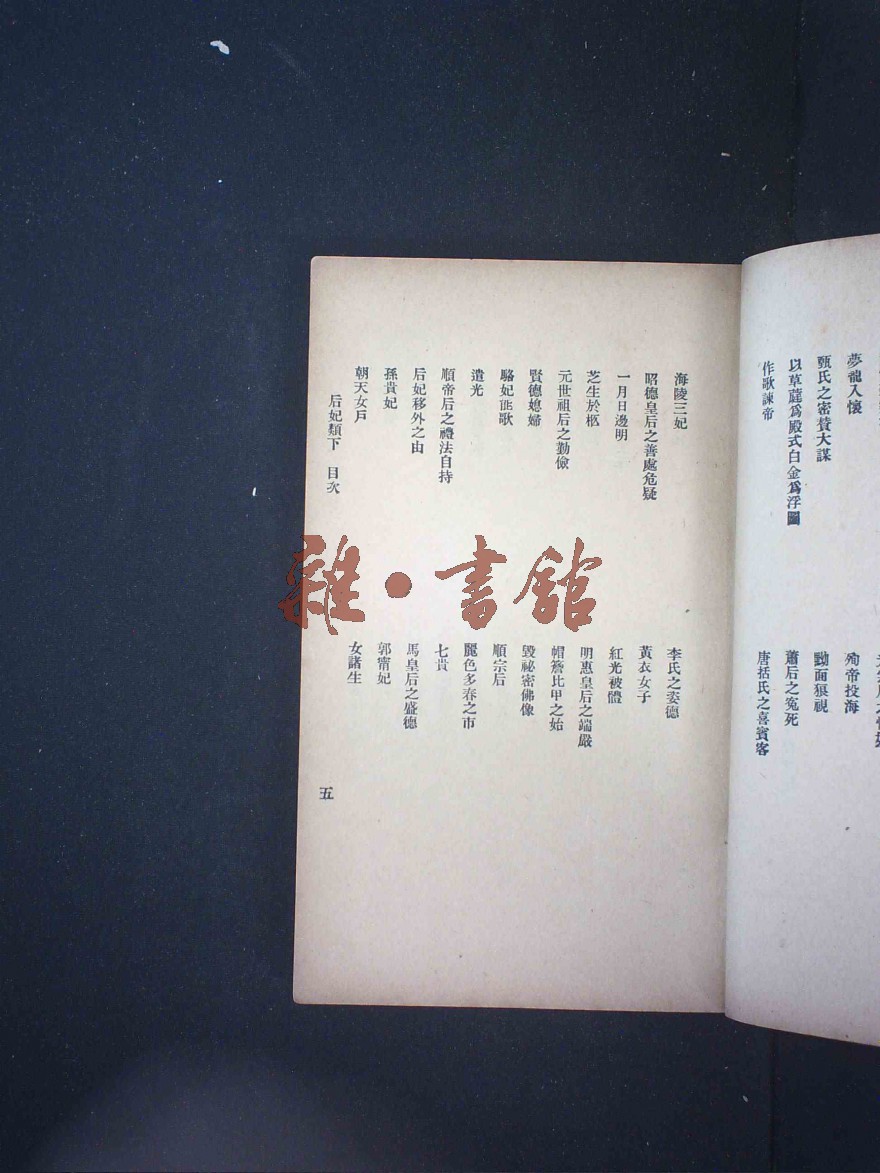 夢龍入懷
殉帝投海
甄氏之密贊大謀
面狠視
以草莛爲殿式白金爲浮圖
蕭后之冤死
作歌諫帝
唐括氏之喜賓客
海陵三妃
李氏之姿德
昭德皇后之善處危疑
黃衣女子
一月日邊明
紅光被體
芝生於柩
明惠皇后之端嚴
元世祖后之勤儉
帽簷比甲之始
賢德媳婦
毀祕密佛像
駱妃誑歌
順宗后
遺光
麗色多春之市
順帝后之禮法自持
七貴
后妃移外之由
馬皇后之盛德
孫貴妃
郭甯妃
朝天女戶
女諸生
后妃類下　目次
五
雜·書館